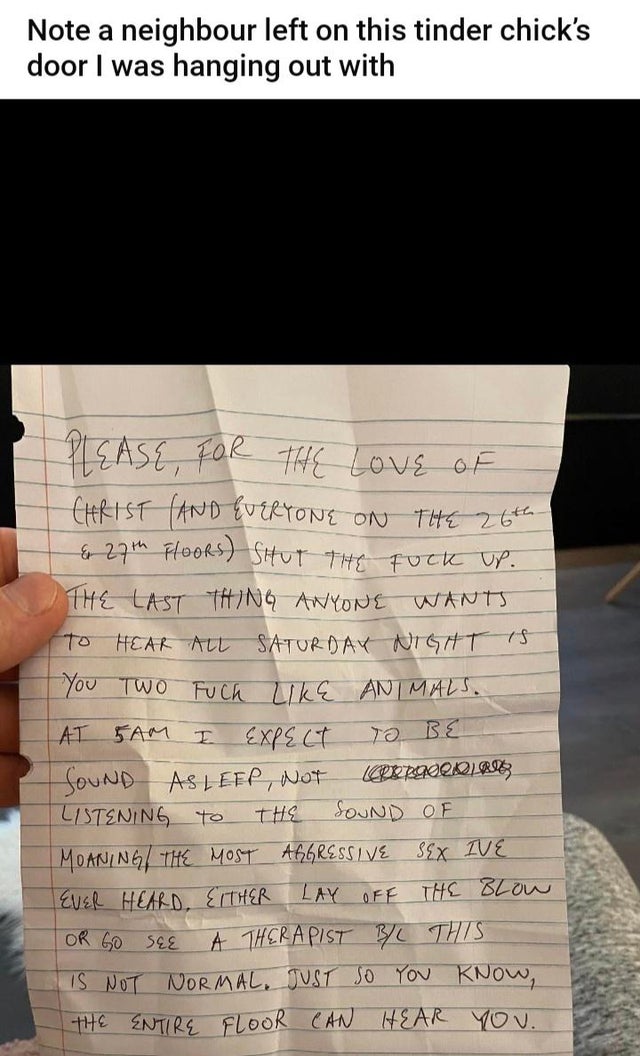 Note a neighbour left on this tinder chick's
door I was hanging out with
PLEASE, FOR THE LOVE OF
CHRIST (AND EVERYONE ON THE 26th
& 27th FlOORS) SHUT THE FUCK UP.
THE LAST THING ANYONE WANTS
TO HEAR ALL SATURDAY NIGHT IS
YOU TWO FUCK LIKE ANIMALS.
AT 5AM I EXPECT TO BE
SOUND ASLEEP, NOT
LISTENING TO THE SOUND OF
MOANING/ THE MOST AGGRESSIVE SEX IVE
EVER HEARD. EITHER LAY OFF THE BLOW
OR GO SEE A THERAPIST B/C THIS
IS NOT NORMAL. JUST SO YOU KNOW,
THE ENTIRE FLOOR CAN HEAR YOU.